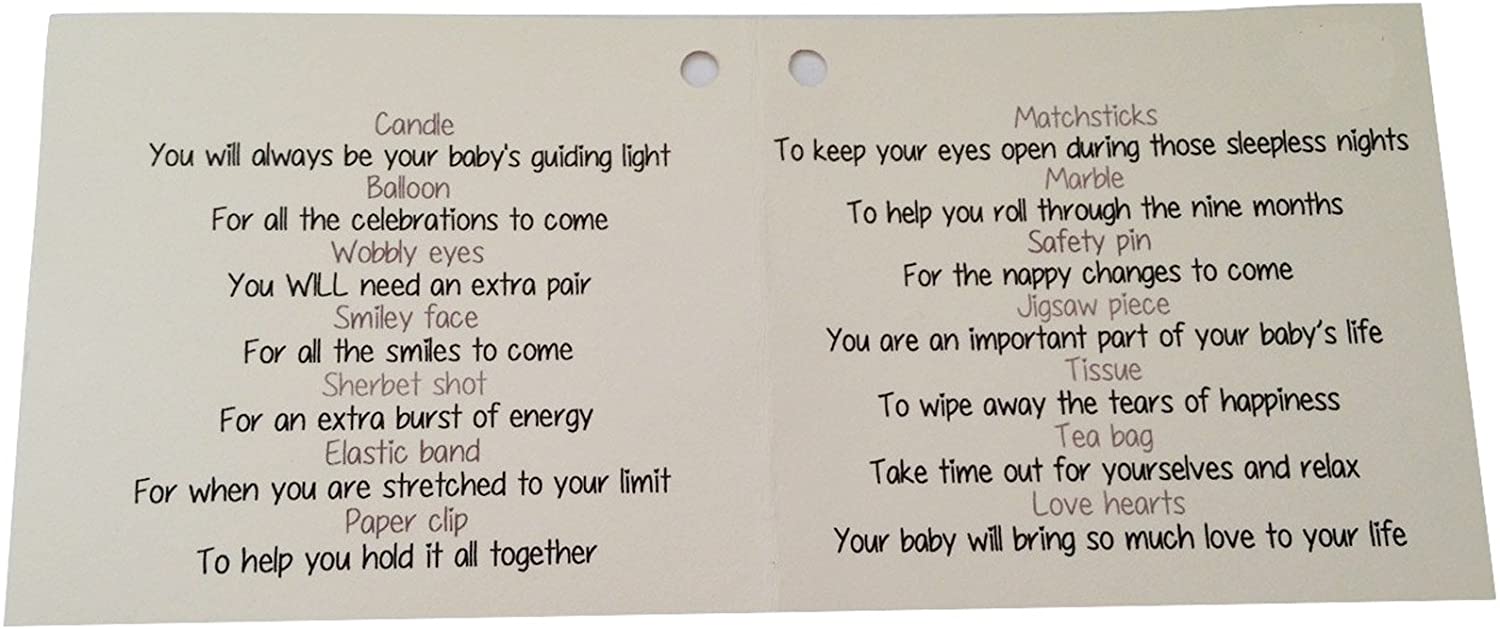 Candle
You will always be your baby's guiding light
Balloon
For all the celebrations to come
Wobbly eyes
You WILL need an extra pair
Smiley face
For all the smiles to come
Sherbet shot
For an extra burst of energy
Elastic band
For when you are stretched to your limit
Paper clip
To help you hold it all together
Matchsticks
To keep your eyes open during those sleepless nights
Marble
To help you roll through the nine months
Safety pin
For the nappy changes to come
Jigsaw piece
You are an important part of your baby's life
Tissue
To wipe away the tears of happiness
Tea bag
Take time out for yourselves and relax
Love hearts
Your baby will bring so much love to your life